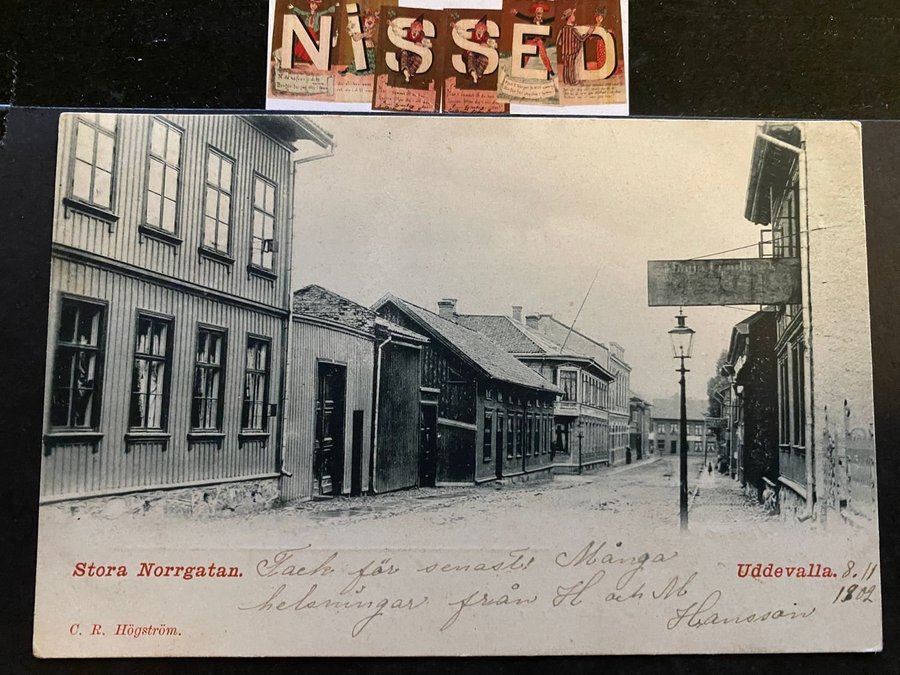 NISSED
Stora Norrgatan.
Tack för senast! Många
helsningar från H och M
Hansson
Uddevalla.
8.11
1902
C. R. Högström.